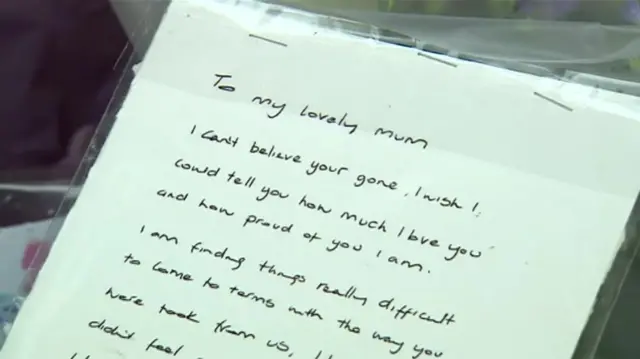 To my lovely mum
I can't believe your gone, I wish I
could tell you how much I love you
and how proud of you I am.
I am finding things really difficult
to come to terms with the way you
were took from us,
didn't feel